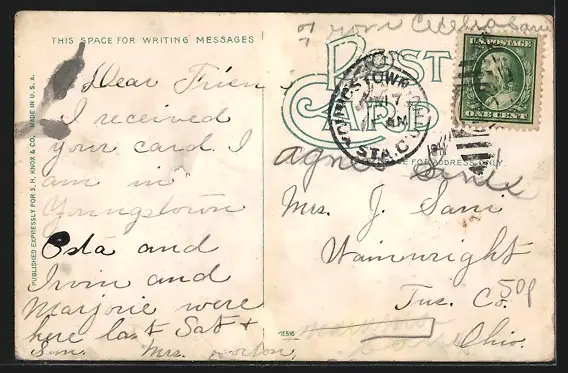 From Cecelia Sani
THIS SPACE FOR WRITING MESSAGES
POST
CARD
U.S. POSTAGE
ONE CENT
YOUNGSTOWN
STA. C.
FOR ADDRESS ONLY.
Dear Frien
I received
your card. I
am in
Youngstown
Osta and
Irvin and
Marjorie were
here last Sat +
Sun. Mrs. Norton,
Mrs. J. Sani
Wainwright
Tus. Co.
Ohio.
50¢
1E516
PUBLISHED EXPRESSLY FOR S. H. KNOX & CO. MADE IN U.S.A.